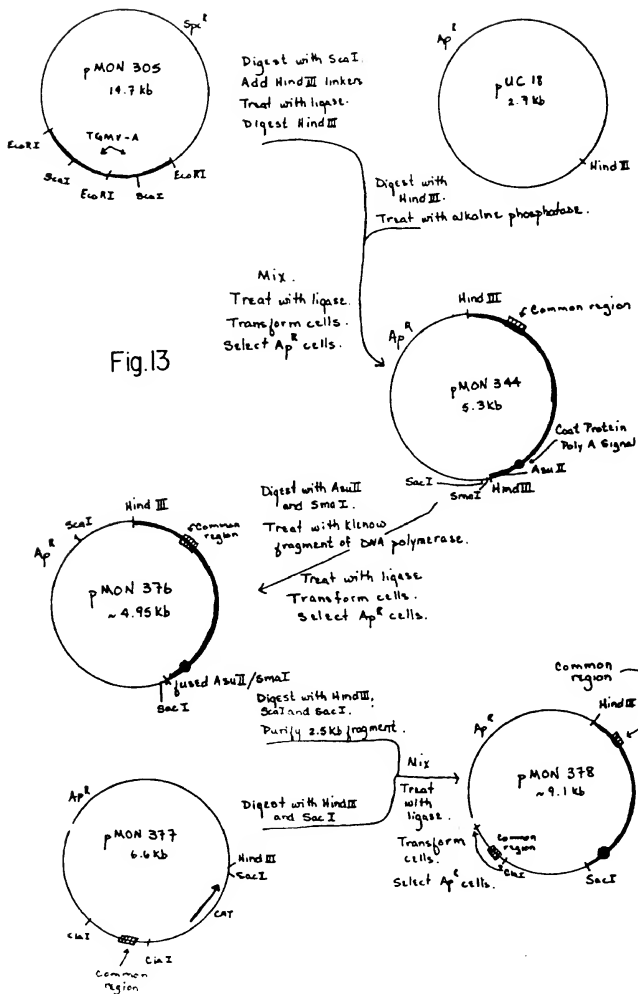 Spc^R
pMON 305
14.7 kb
TGMV-A
EcoRI
ScaI
EcoRI
ScaI
EcoRI
Digest with ScaI.
Add Hind III linkers
Treat with ligase.
Digest Hind III
Ap^R
pUC 18
2.7 kb
Hind III
Digest with
Hind III.
Treat with alkaline phosphatase.
Mix.
Treat with ligase.
Transform cells.
Select Ap^R cells.
Fig.13
Hind III
Common region
Ap^R
pMON 344
5.3 kb
Coat Protein
Poly A Signal
AsuII
Hind III
SmaI
SacI
Digest with AsuII
and SmaI.
Treat with Klenow
fragment of DNA polymerase.
Treat with ligase
Transform cells.
Select Ap^R cells.
Hind III
ScaI
Ap^R
Common
region
pMON 376
~4.95 Kb
fused AsuII/SmaI
SacI
Digest with Hind III,
ScaI and SacI.
Purify 2.5 Kb fragment.
Ap^R
pMON 377
6.6 kb
Hind III
SacI
CAT
ClaI
ClaI
Common
region
Digest with Hind III
and SacI
Mix
Treat
with
ligase.
Transform
cells.
Select Ap^R cells.
Common
region
Hind III
Ap^R
pMON 378
~9.1 kb
Common
region
ClaI
SacI